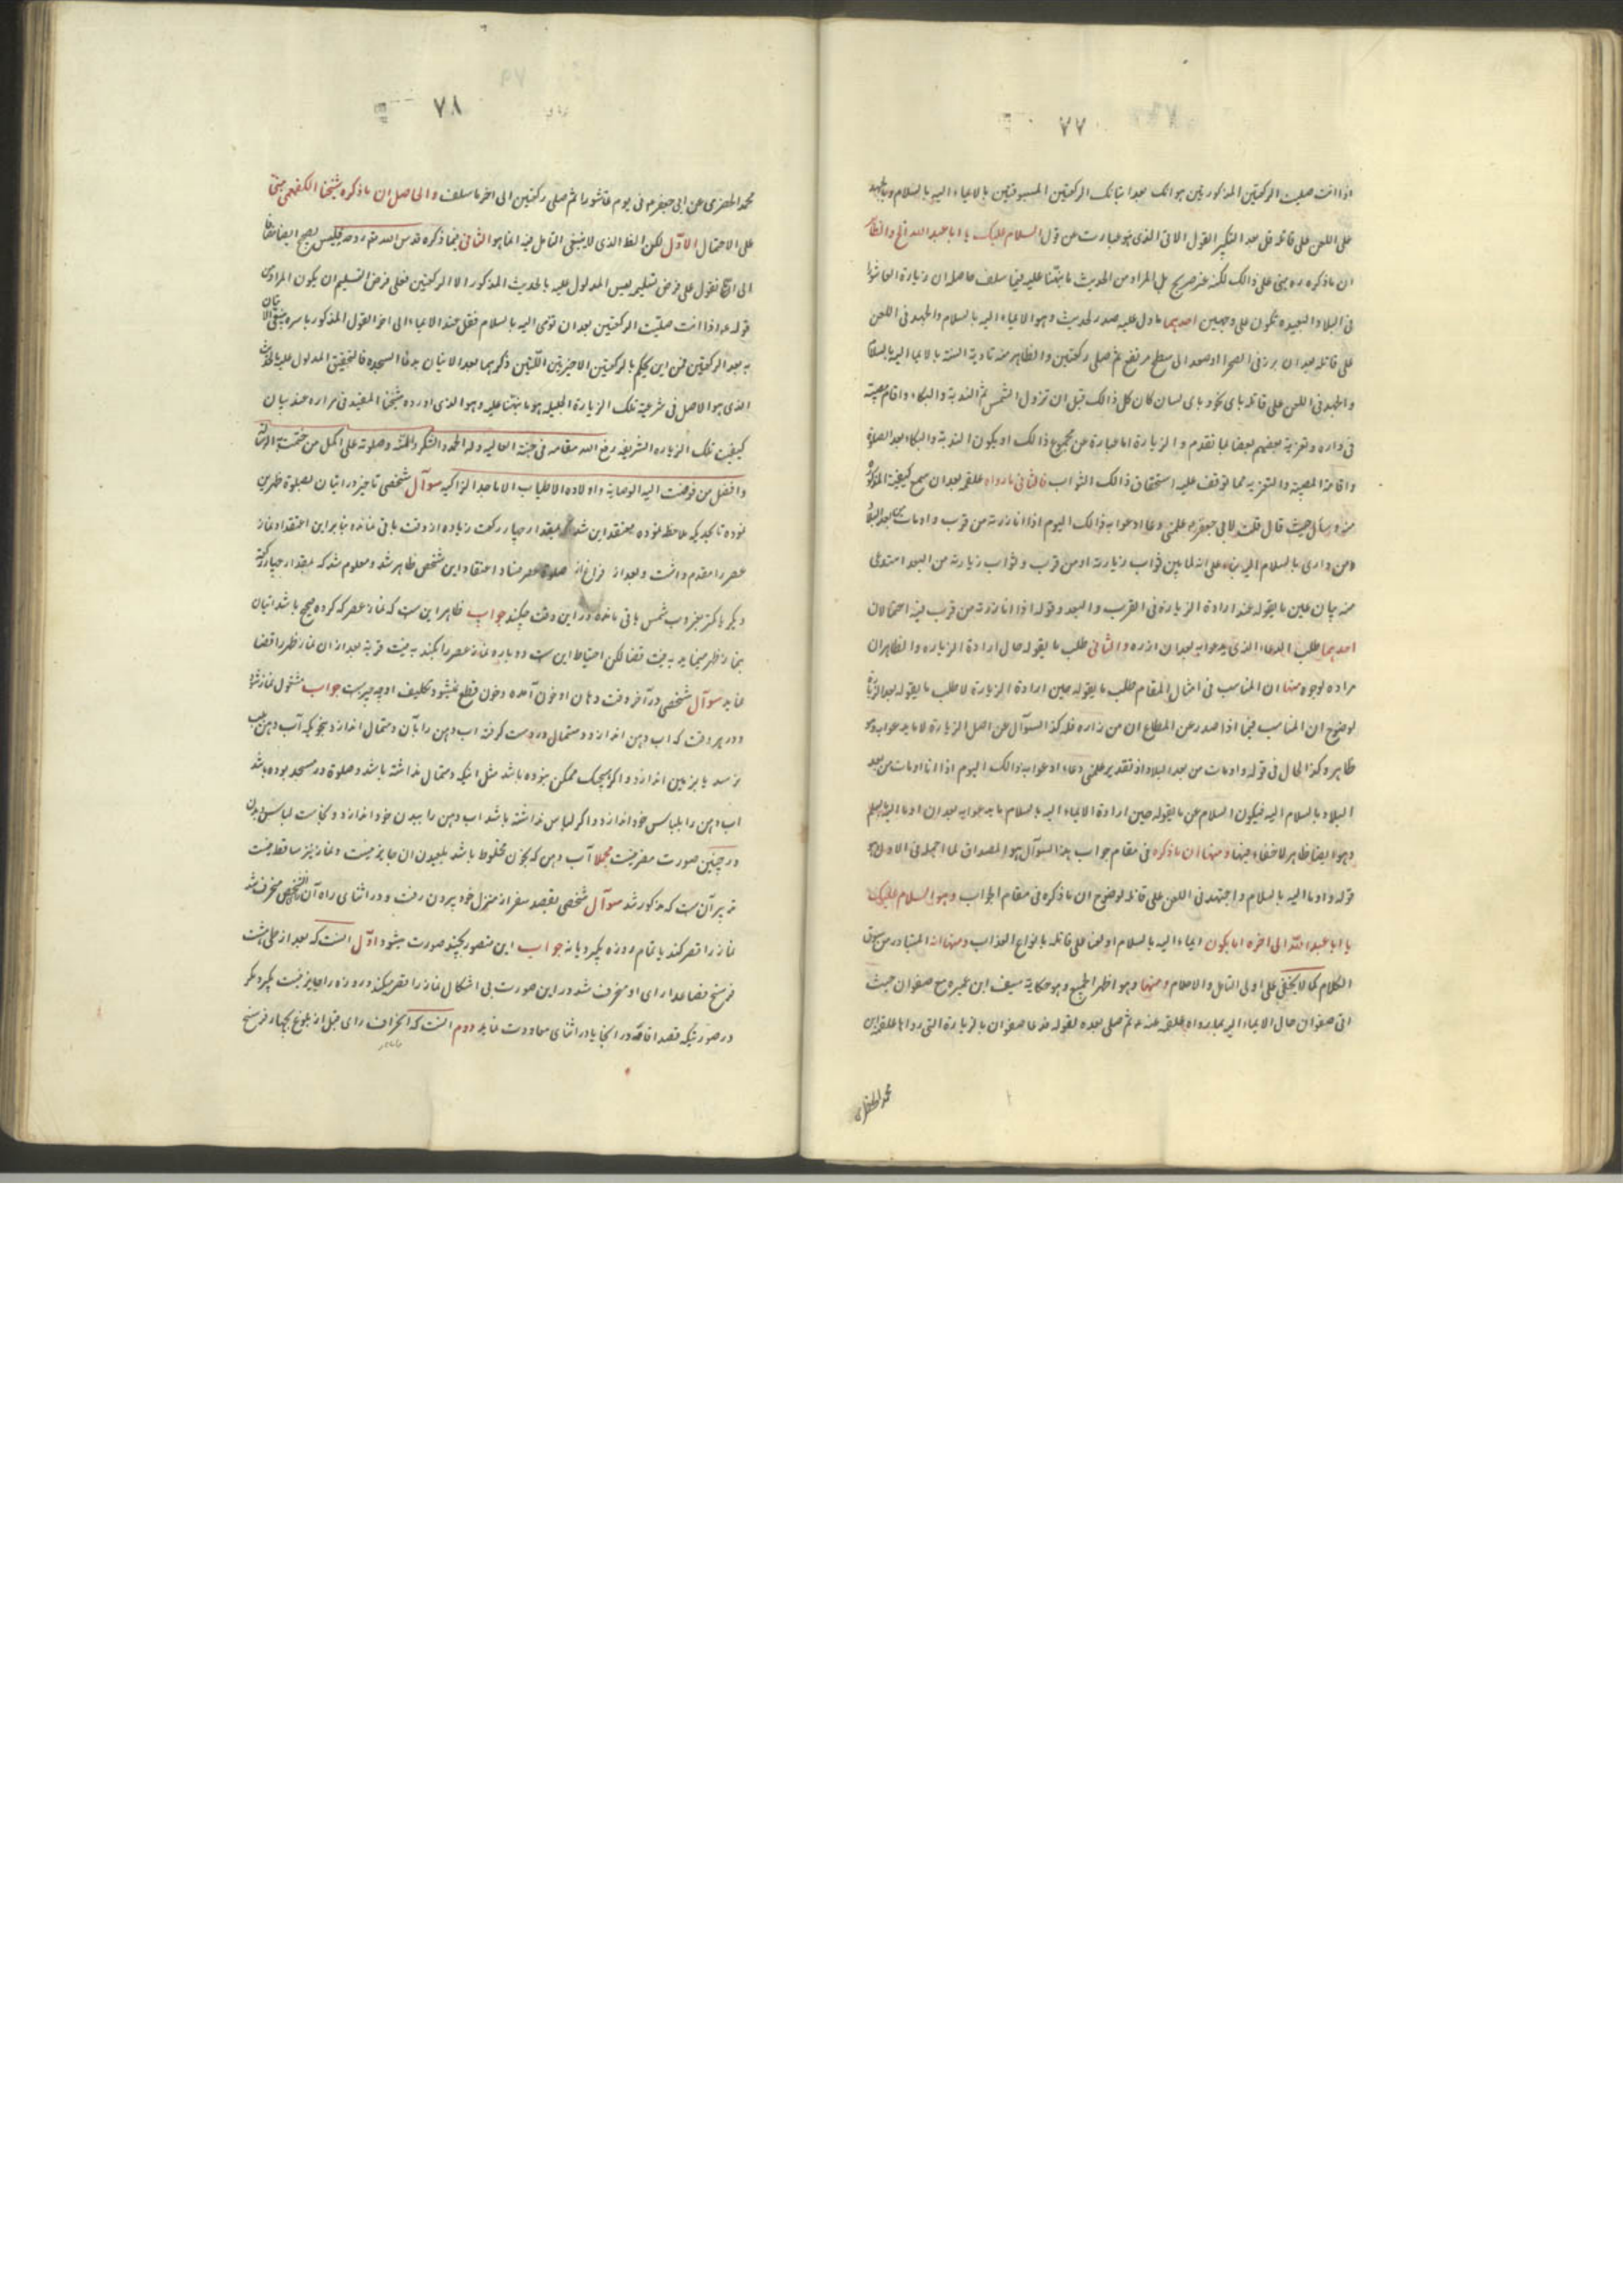 ٧٧
اذا انت صليت الركعتين المذكورتين هو انك بعد اتيانك الركعتين المسبوقتين بالايماء اليه بالسلام وبالجهد
على اللعن على قاتله قل بعد التكبير القول الاتى الذى هو عبارت عن قول السلام عليك يا ابا عبد الله الخ والظاهر
ان ما ذكره ره مبنى على ذالك لكنه غير صريح بل المراد من الحديث ما نبّهنا عليه فيما سلف حاصله ان زيارة العاشورا
فى البلاد البعيده تكون على وجهين احديهما ما دل عليه صدر الحديث وهو الايماء اليه بالسلام والجهد فى اللعن
على قاتله بعد ان برز فى الصحرا او صعد الى سطح مرتفع ثم صلى ركعتين والظاهر منه تادية السنة بالايماء اليه بالسلام
والجهد فى اللعن على قاتله باى نحو و باى لسان كان كل ذالك قبل ان تزول الشمس ثم الندبة والبكاء و اقام مصيبته
فى داره و تعزية بعضهم بعضا بما تقدم و الزيارة اما عبارة عن مجموع ذالك او يكون الندبة والبكاء بعد الصلوة
و اقامة المصيبة والتعزية مما توقف عليه استحقاق ذالك الثواب فالثانى ما رواه علقمه بعد ان سمع كيفية المذكورة
منه و سأل حيث قال قلت لابى جعفر ع علمنى دعا ادعوا به ذالك اليوم اذا انا زرته من قرب و اومات من بعد البلاد
ومن دارى بالسلام اليه بناء على انه لما بين ثواب زيارته اومن قرب و ثواب زيارته من البعد استدعى
منه بيان علين ما يقوله عند ارادة الزيارة فى القرب والبعد و قوله اذا انا زرته من قرب فيه احتمالان
احديهما طلب الدعاء الذى يدعوا به بعد ان ازره والثانى طلب ما يقوله حال ارادة الزياره والظاهر ان
مراده لوجوه منها ان المناسب فى امثال المقام طلب ما يقوله حين ارادة الزيارة لا طلب ما يقوله بعد الزيارة
لوضوح ان المناسب فيما اذا صدر عن المطاع ان من زاره فله كذا السؤال عن اصل الزيارة لا ما يدعوا به وهو
ظاهر و كذا الحال فى قوله و اومات من بعد البلاد اذ تقدير علمنى دعاء ادعوا به ذالك اليوم اذا انا اومات من بعد
البلاد بالسلام اليه فيكون السلام عن ما يقوله حين ارادة الايماء اليه بالسلام ما يدعوا به بعد ان اوما اليه بالسلام
وهو ايضا ظاهر لا خفاء فيها و منها ان ما ذكره فى مقام جواب هذا السؤال هو المصداق لما اجمله فى الاول وهو
قوله و اوما اليه بالسلام و اجتهد فى اللعن على قاتله لوضوح ان ما ذكره فى مقام الجواب وهو السلام عليك
يا ابا عبد الله الى اخره اما يكون ايماء اليه بالسلام او لعنا على قاتله بانواع العذاب و منها انه المتبادر من سوق
الكلام كما لا يخفى على اولى التامل والاحلام و منها وهو اظهر الجميع وهو حكاية سيف ابن عميره مع صفوان حيث
اتى صفوان حال الايماء اليه بما رواه علقمه عنه ع ثم صلى بعده لقوله فدعا صفوان بالزيارة التى رواها علقمه ابن
محمد الحضرمى
٧٨
محمد الحضرمى عن ابى جعفر ع فى يوم عاشورا ثم صلى ركعتين الى اخر ما سلف والحاصل ان ما ذكره شيخنا الكفعمى مبنى
على الاحتمال الاوّل لكن الظ الذى لا ينبغى التامل فيه انما هو الثانى فيما ذكره قدس الله روحه فليس بصحيح ايضا
نقول على فرض تسليم ليس المدلول عليه بالحديث المذكور الا الركعتين فعلى فرض التسليم ان يكون المراد من
قوله ع اذا انت صليت الركعتين بعد ان تومى اليه بالسلام فقل عند الايماء الى اخر القول المذكور باسره ينبغى الاتيان
به بعد الركعتين فمن اين يحكم بالركعتين الاخيرتين اللّتين ذكرهما بعد الاتيان بدعا السجده فالتحقيق المدلول عليه بالحديث
الذى هو الاصل فى شرعية تلك الزيارة الجليله هو ما نبّهنا عليه وهو الذى اورده شيخنا المفيد فى مزاره عند بيان
كيفيت تلك الزياره الشريفه رفع الله مقامه فى جنته العاليه وله الحمد والشكر والمنّة و صلوته على اكمل من ختمت به الرسالة
و افضل من فوضت اليه الوصاية و اولاده الاطياب الاماجد الزاكيه سوآل شخصى تاخير در اتيان بصلوة ظهرين
نموده تا بحديكه ملاحظه نموده معتقد اين شد كه بمقدار چهار ركعت زياده از وقت باقى نمانده بنا بر اين اعتقاد نماز
عصر را مقدم داشت و بعد از فراغ از صلوة عصر فساد اعتقاد اين شخص ظاهر شد و معلوم شد كه بمقدار چهار ركعت
ديكر يا كمتر بغروب شمس باقى مانده در اين وقت چكند جواب ظاهر اين ست كه نماز عصر كه كرده صحيح باشد اتيان
بنماز ظهر مينمايد به نيت قضا لكن احتياط اين ست دوباره نماز عصر را بكند به نيت قربة بعد از ان نماز ظهر را قضا
نمايد سوآل شخصى در آخر وقت دهان او خون آمده و خون قطع نميشود تكليف او چه چيز ست جواب مشغول نماز شود
و در هر وقت كه اب دهن اندازد دستمال در دست كرفته اب دهن را بآن دستمال اندازد بنحويكه آب دهن بلب
نرسد يا بزمين اندازد و اكر هيچيك ممكن نبوده باشد مثل اينكه دستمال نداشته باشد و صلوة در مسجد بوده باشد
اب دهن را بلباس خود اندازد و اكر لباس نداشته باشد اب دهن را ببدن خود اندازد و نجاست لباس و بدن
در چنين صورت مضر نيست مجملا آب دهن كه بخون مخلوط باشد بلعيدن ان جايز نيست و نماز نيز ساقط نيست
تدبير آن ست كه مذكور شد سوآل شخصى بقصد سفر از منزل خود بيرون رفت و در اثناى راه آن شخص منحرف شد
نماز را قصر كند يا تمام و روزه بكيرد يا نه جواب اين متصور بچند صورت ميشود اوّل انست كه بعد از طى هشت
فرسخ فصاعدا راى او منحرف شد در اين صورت بى اشكال نماز را قصر ميكند و روزه را جايز نيست بكيرد مكر
در صورتيكه قصد اقامه در انجا يا در اثناى معاودت نمايد دوم انست كه انحراف راى قبل از بلوغ بچهار فرسخ